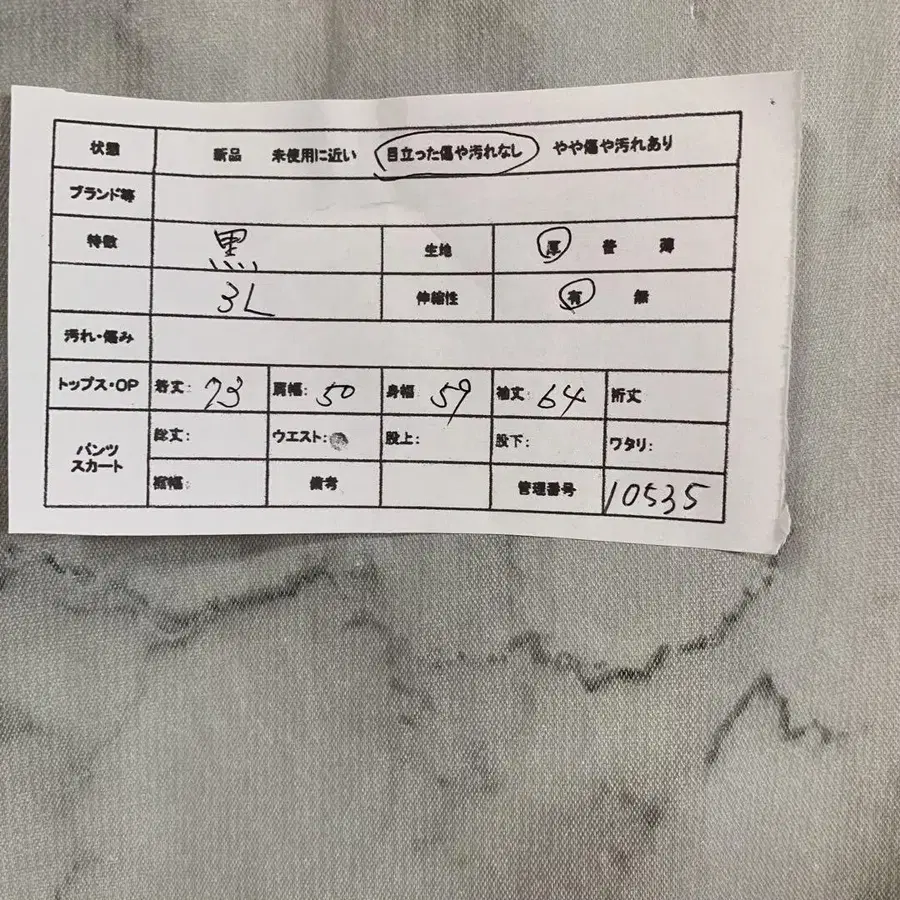 状態 新品 未使用に近い 目立った傷や汚れなし やや傷や汚れあり
ブランド等
特徴 黒 生地 厚 普 薄
3L 伸縮性 有 無
汚れ・傷み
トップス・OP 着丈: 73 肩幅: 50 身幅: 59 袖丈: 64 裄丈
パンツ スカート 総丈: ウエスト: 股上: 股下: ワタリ:
裾幅: 備考 管理番号 10535